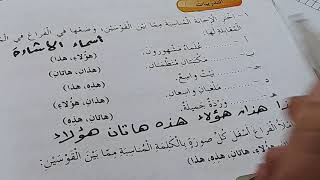 التدريبات
١- اختر الإجابة المناسبة مما بين القوسين، وضعها في الفراغ في
المقابلة لها:
أسماء الإشارة
أ - علماء مشهورون. (هؤلاء، هذا)
ب - مكتبتان منظمتان. (هذان، هاتان)
ج - بيت واسع. (هذه، هذا)
د - ملعبان واسعان. (هذان، هؤلاء)
هـ - وردة جميلة. (هذا، هذه)
هذا هذان هؤلاء هذه هاتان هؤلاء
املأ الفراغ أسفل كل صورة بالكلمة المناسبة مما بين القوسين:
(هؤلاء، هاتان، هذه، هذا)